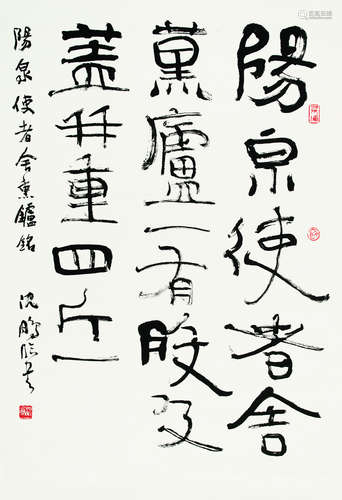 陽泉使者舍
薰廬一有般及
蓋并重四斤一
陽泉使者舍熏鑪銘 沈鵬臨書